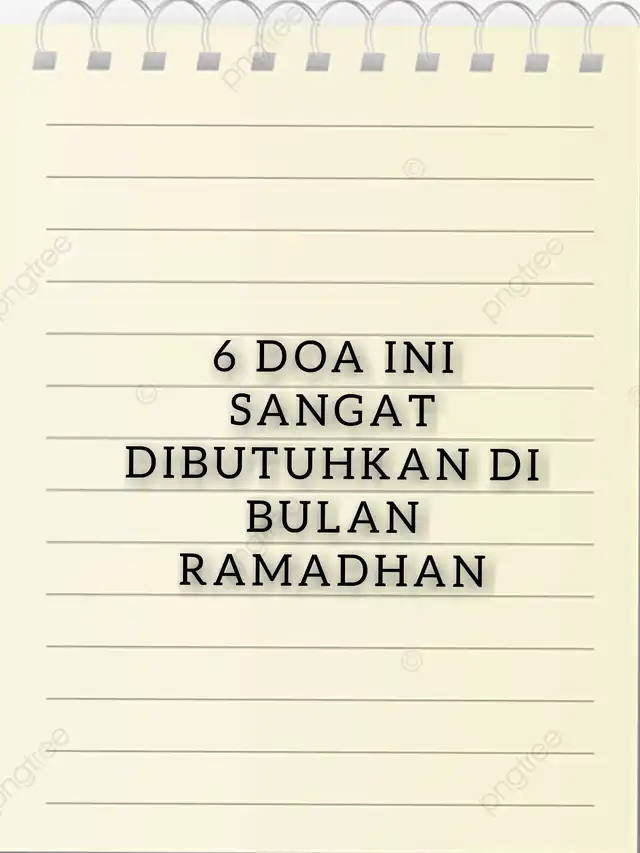 pngtree
pngtree
pngtree
6 DOA INI
SANGAT
DIBUTUHKAN DI
BULAN
RAMADHAN
pngtree
pngtree
pngtree